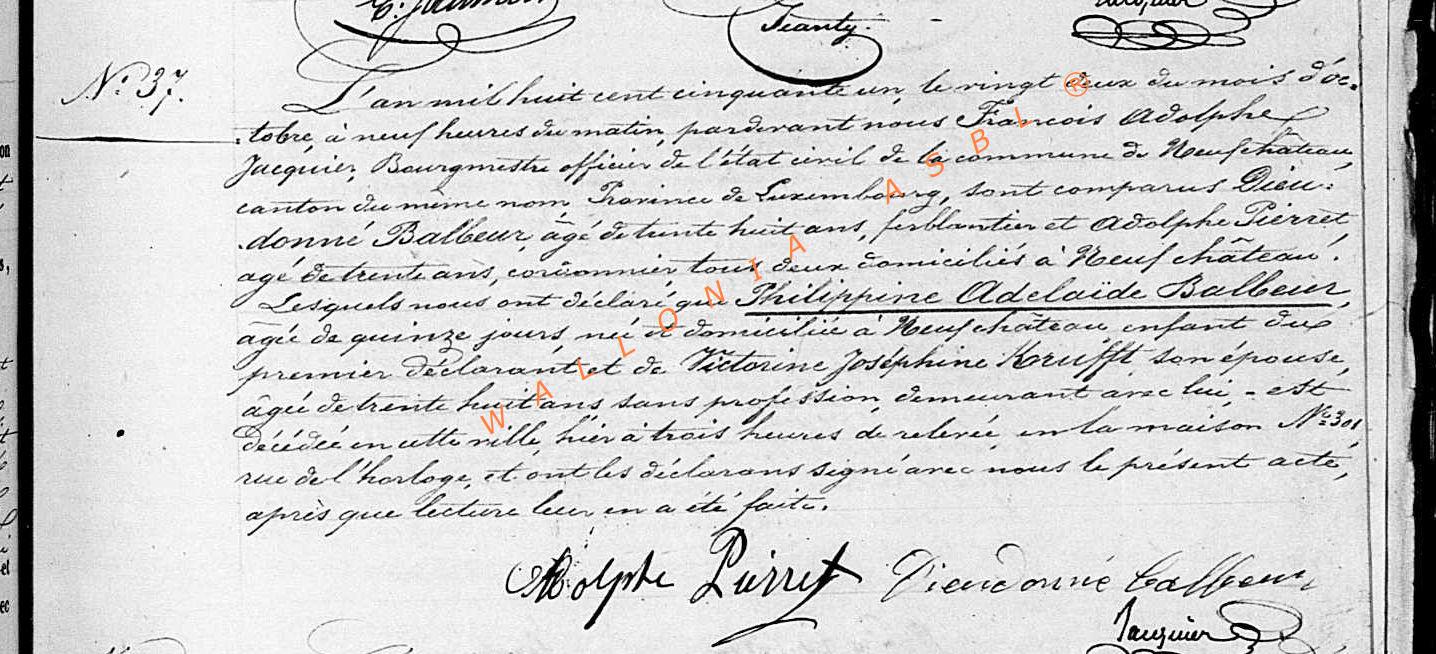 Jeanty.
Jacquier
N.º 37.
L'an mil huit cent cinquante un, le vingt deux du mois d'oc=
=tobre, à neuf heures du matin, pardevant nous François Adolphe
Jacquier, Bourgmestre officier de l'état civil de la commune de Neufchâteau,
canton du même nom Province de Luxembourg, sont comparus Dieu=
donné Balbeur, âgé de trente huit ans, ferblantier et Adolphe Pierret,
agé de trente ans, cordonnier, tous deux domiciliés à Neufchâteau.
Lesquels nous ont déclaré que Philippine Adelaïde Balbeur,
âgée de quinze jours, née et domiciliée à Neufchâteau enfant du
premier déclarant et de Victorine Joséphine Krufft, son épouse,
âgée de trente huit ans sans profession, demeurant avec lui, - est
décédée en cette ville, hier à trois heures de relevée, en la maison Nº 301,
rue de l'horloge, et ont les déclarans signé avec nous le présent acte,
après que lecture leur en a été faite.
Adolphe Pierret Dieudonné Balbeur
Jacquier
WALLONIA ASBL ®